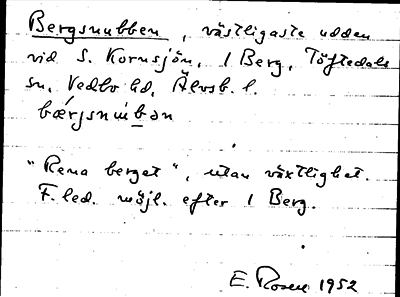 Bergsnubben, västligaste udden
vid S. Kornsjön, 1 Berg, Töftedals
sn, Vedbo hd, Älvsb. l.
bærjsnub̲ən
"Rena berget", utan växtlighet.
F. led. möjl. efter 1 Berg.
E. Rosen 1952